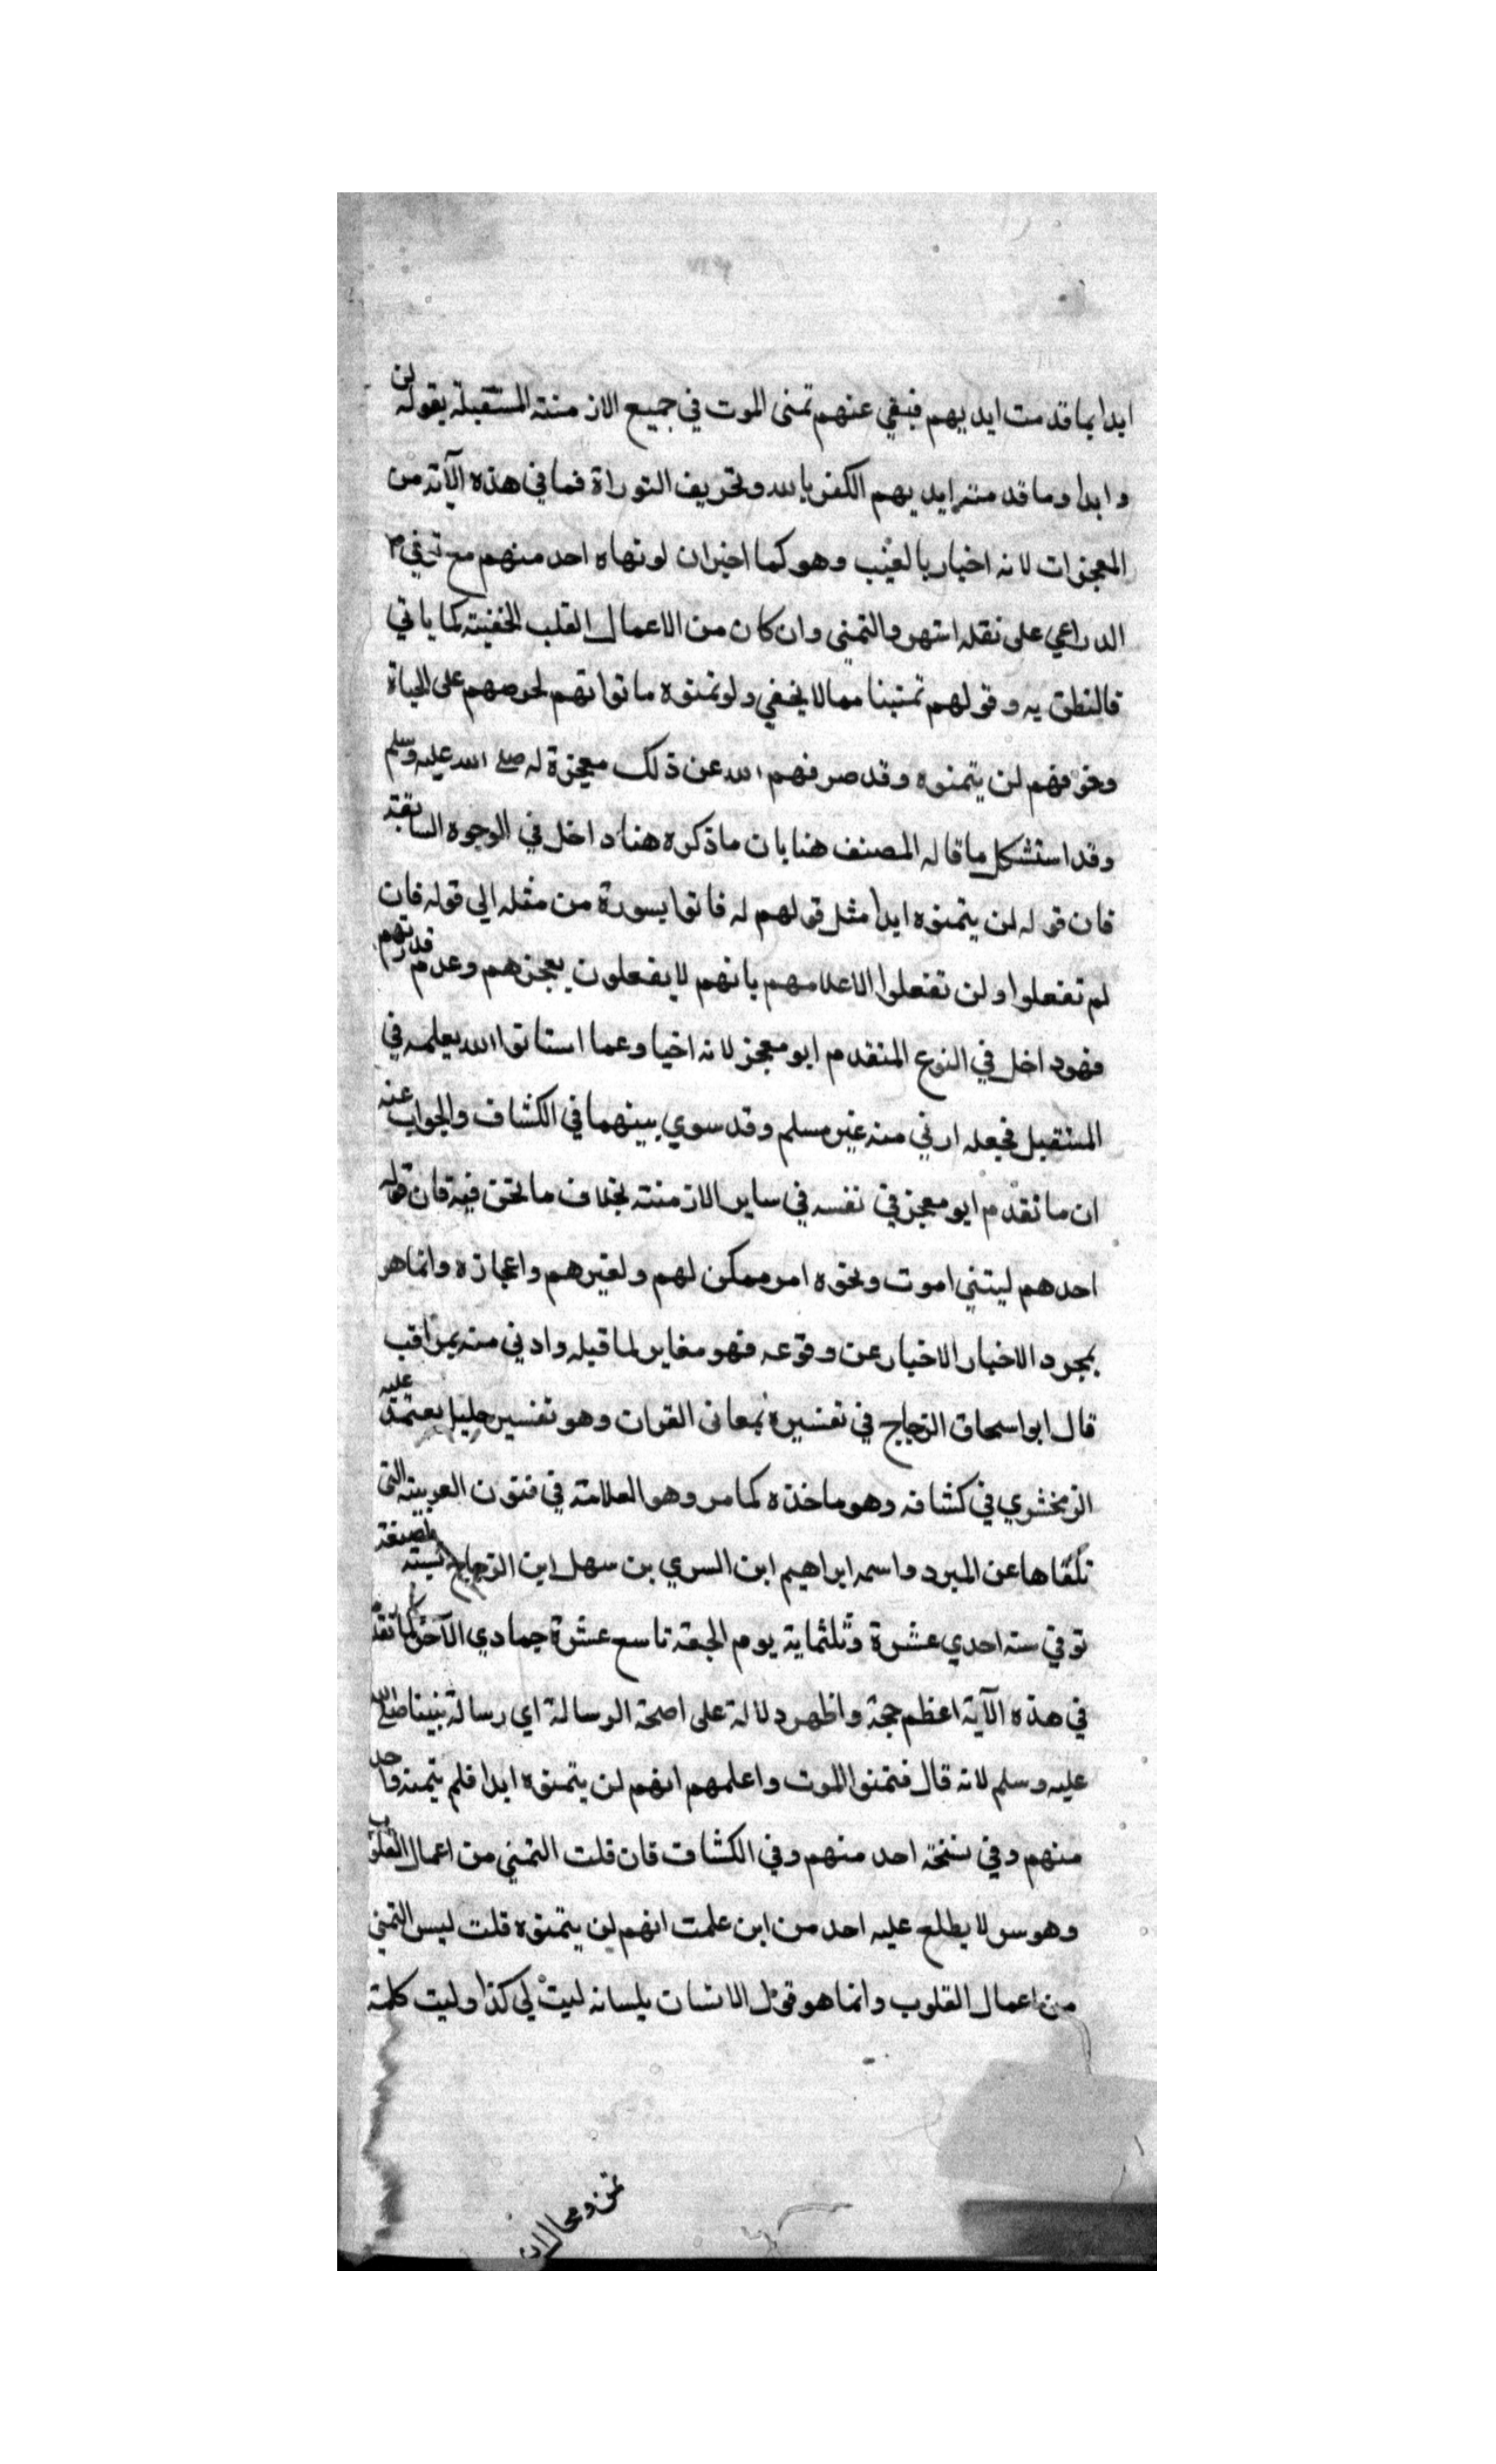 ابدا بما قدمت ايديهم فبقي عنهم تمنى الموت في جميع الازمنته المستقبلة بقوله لن
و ابدا وما قدمته ايديهم الكفر بالله وتحريف التوراة فما في هذه الآية من
المعجزات لانه اخبار بالغيب وهو كما اخبر ان لو تمناه احد منهم مع
الدراعي على نقله اشتهر والتمني وان كان من الاعمال القلب الخفيته كما ياتي
فالنطق به وقولهم تمنينا مما لا يخفي ولو تمنوه ماتوا تهم لحرصهم على الحياة
وخوفهم لن يتمنوه وقد صرفهم الله عن ذلك معجزة له صلى الله عليه وسلم
وقد استشكل ما قاله المصنف هنا بان ما ذكره هنا داخل في الوجوه السابقة
فان قوله لن يتمنوه ابدا مثل قولهم له فاتوا بسورة من مثله الى قوله فان
لم تفعلوا ولن تفعلوا الاعلامهم بانهم لا يفعلون بعجزهم وعدم قدرتهم
فهو داخل في النوع المتقدم ابو معجز لانه اخبا وعما استاتوا الله بعلمه في
المستقبل فجعله ارني منه غير مسلم وقد سوي بينهما في الكشاف والجواب عنه
ان ما تقدم ابو معجز في نفسه في ساير الازمنته بخلاف ما نحن فيه فان قوله
احدهم ليتني اموت ونحوه امر ممكن لهم ولغيرهم واعجازه وانما هو
بمجرد الاخبار الاخبار عن وقوعه فهو مغاير لما قبله وادني منه بمراقب
قال ابو اسحاق الزجاج في تفسيره بمعانى القران وهو تفسير جليل يعتمد عليه
الزمخشري في كشافه وهو ماخذه كما مر وهو العلامته في فنون العربيته التي
تلقاها عن المبرد واسمه ابراهيم ابن السري بن سهل ابن الزجاج نسبته لصنعة
توفي سنه احدي عشرة وثلثماية يوم الجمعة تاسع عشرة جمادي الآخر كما تقدم
في هذه الآية اعظم حجة واظهر دلالة على اصحة الرسالة اي رسالة نبينا صلى الله
عليه وسلم لانه قال فتمنوا الموت واعلمهم انهم لن يتمنوه ابدا فلم يتمنه واحد
منهم وفي نسخة احد منهم وفي الكشاف فان قلت التمني من اعمال القلوب
وهو سر لا يطلع عليه احد من اين علمت انهم لن يتمنوه قلت ليس التمني
من اعمال القلوب وانما هو قول الانسان بلسانه ليت لي كذا وليت كلمة
تمن ومحال ان